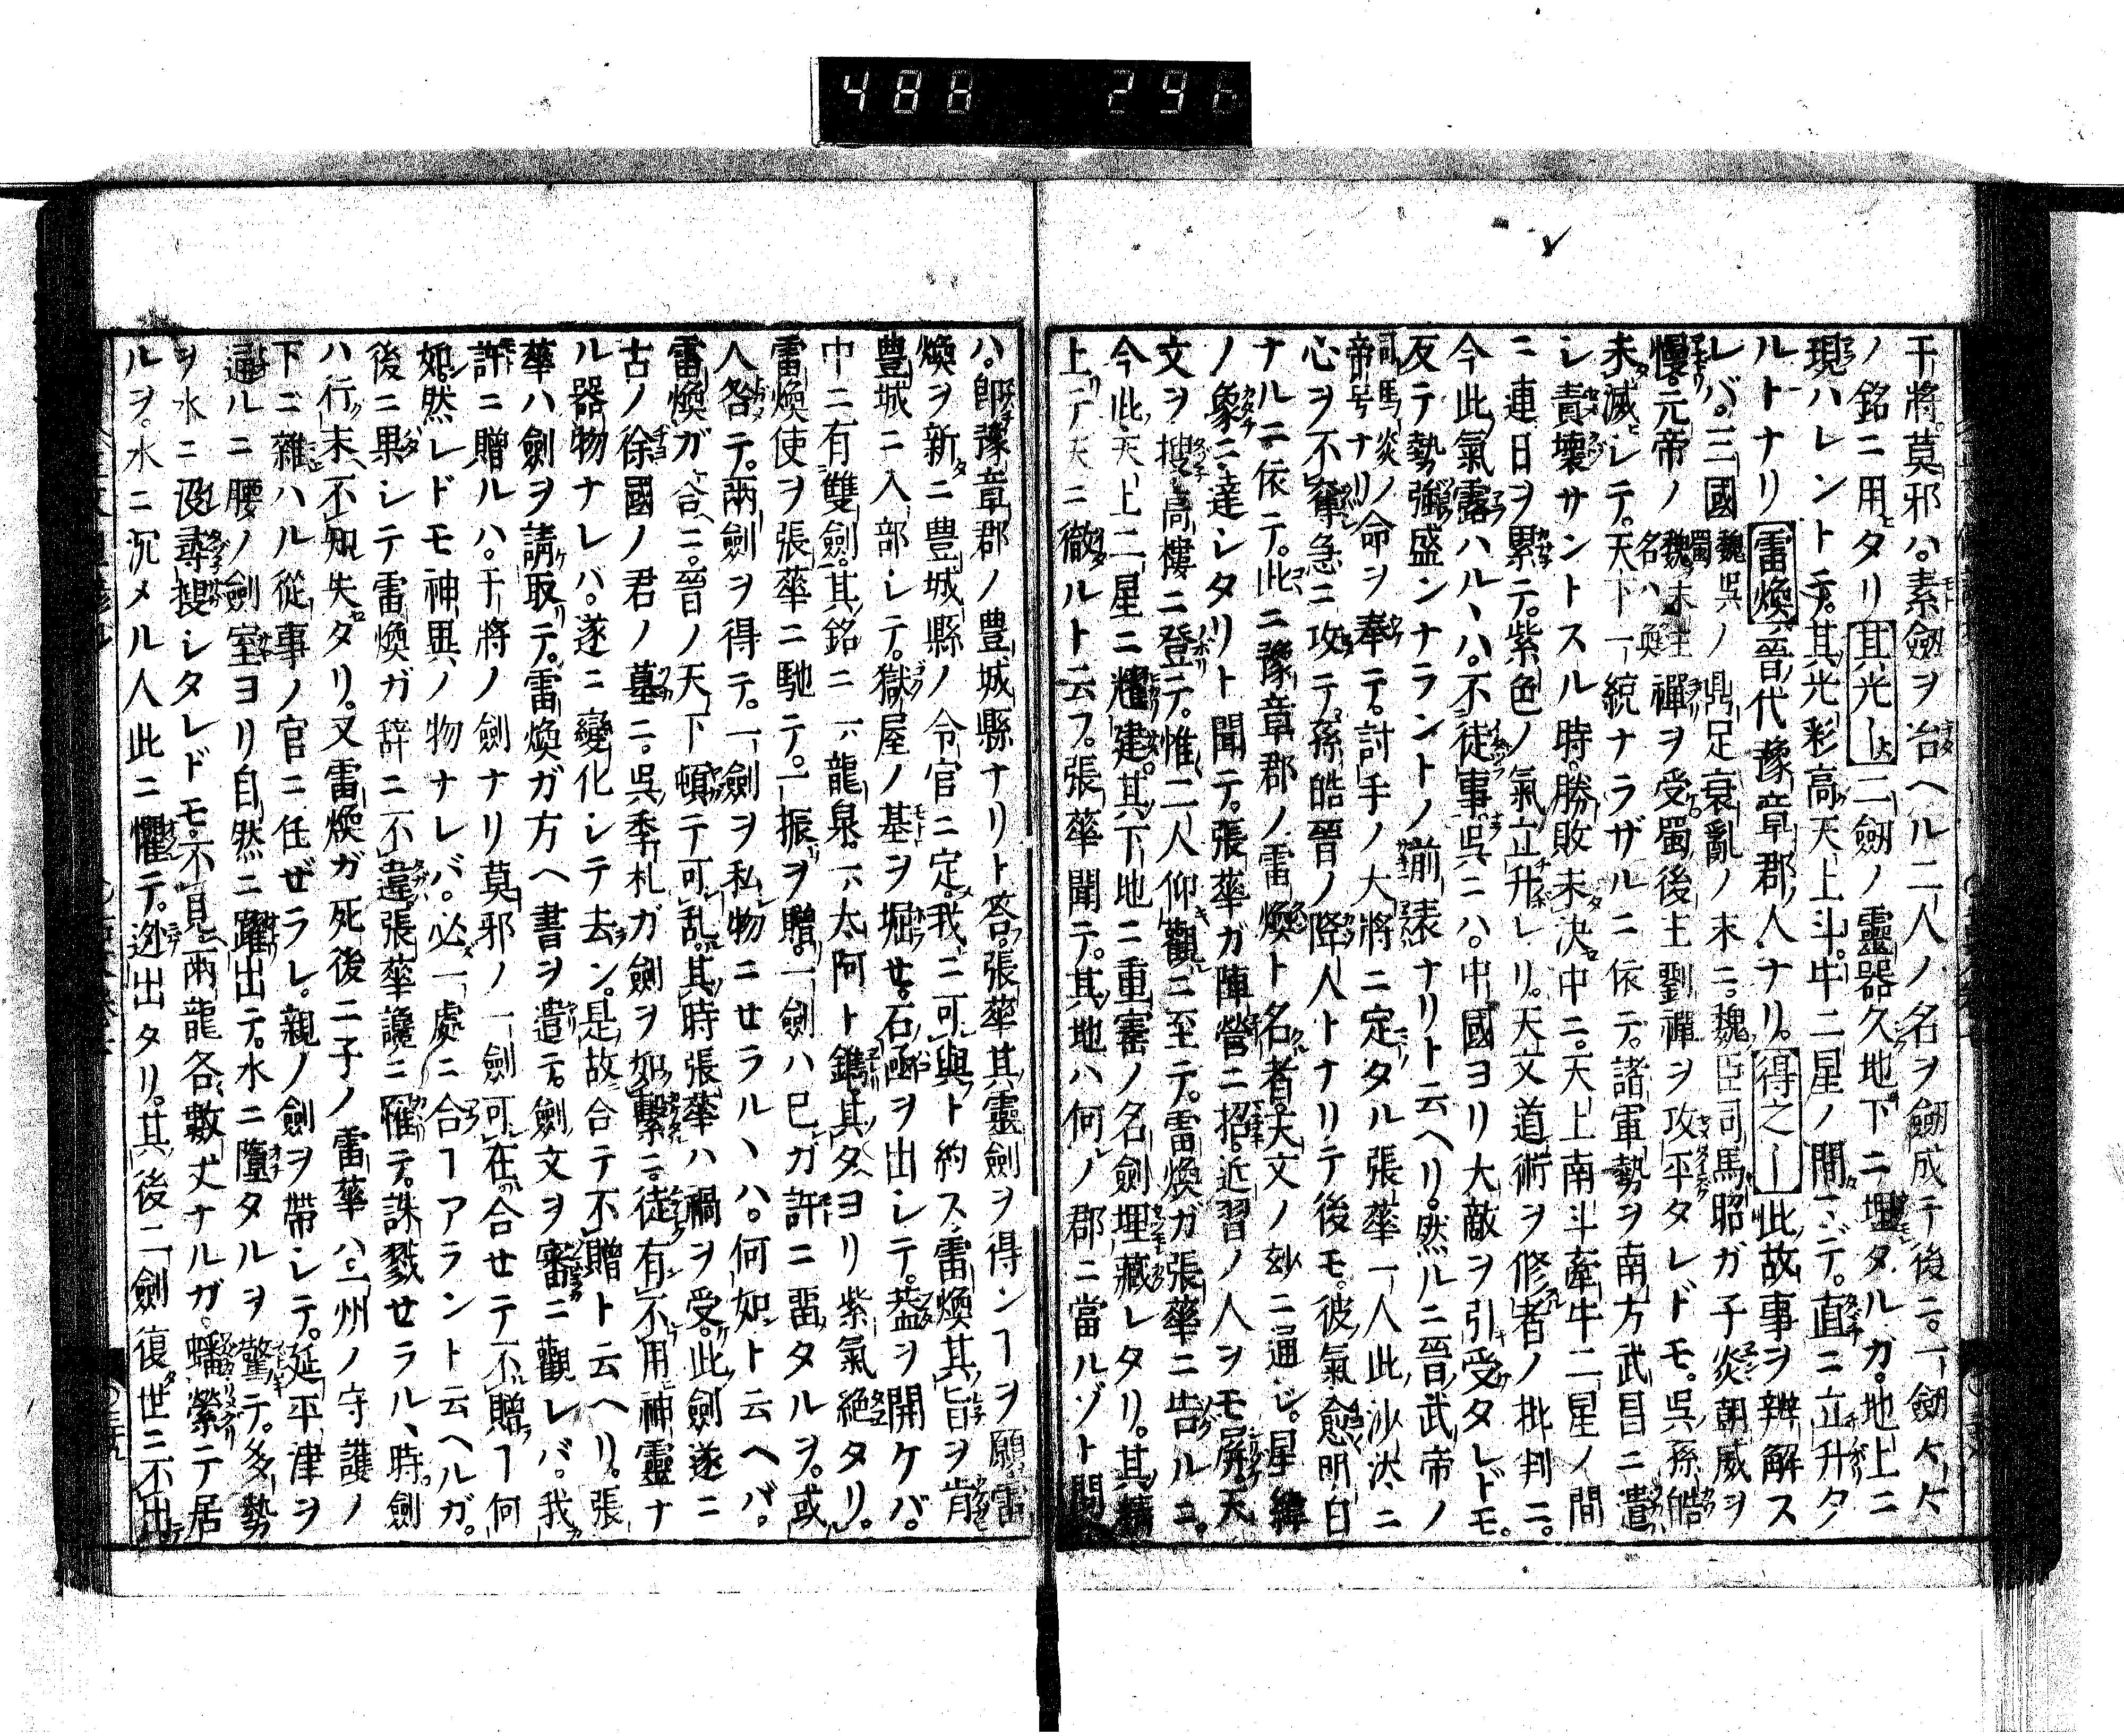 488 296
干將莫邪ハ。素劔ヲ冶ヘル二人ノ名ヲ劔成テ後ニ。一劔
ノ銘ニ用タリ其光―二劔ノ靈器久地下ニ埋タルガ。地上ニ
現ハレントテ。其光彩高天上斗。牛二星ノ間ニ。直ニ立升タ
ルトナリ雷煥晉代豫章郡ノ人ナリ。得之―此故事ヲ辨解ス
レバ。三國魏吳蜀ノ鼎足衰亂ノ末ニ。魏臣司馬昭ガ子炎朝威ヲ
慢。元帝ノ魏末主名ハ奐禪ヲ受。蜀後主劉禪ヲ攻平タレドモ。吳孫皓
未滅シテ。天下一統ナラザルニ依テ。諸軍勢ヲ南方武昌ニ遣
シ責壞サントスル時。勝敗未決中ニ。天上南斗牽牛二星ノ間
ニ連日ヲ累テ。紫色ノ氣立升レリ。天文道術ヲ修者ノ批判ニ。
今此氣露ハルヽハ。不徒事。吳ニハ。中國ヨリ大敵ヲ引受タレドモ。
反テ勢強盛ンナラントノ前表ナリト云ヘリ。然ルニ晉武帝ノ
司馬炎ノ帝号ナリ命ヲ奉テ。討手ノ大將ニ定タル張華一人此沙汰ニ
心ヲ不奪急ニ攻テ。孫皓晉ノ降人トナリテ後モ。彼氣愈明白
ナルニ依テ。此ニ豫章郡ノ雷煥ト名者。天文ノ妙ニ通ジ。星緯
ノ象ニ達シタリト聞テ。張華ガ陣營ニ招。近習ノ人ヲモ屏。天
文ヲ搜。高樓ニ登テ。惟二人仰觀ニ至テ。雷煥ガ張華ニ告ルニ。
今此天上二星ニ耀建。其下地ニ重寶ノ名劍埋藏レタリ。其精
上テ天ニ徹ルト云フ。張華聞テ。其地ハ何ノ郡ニ當ルゾト問
ハ。卽豫章郡ノ豊城縣ナリト答。張華其靈劍ヲ得ンヿヲ願。雷
煥ヲ新ニ豊城縣ノ令官ニ定。我ニ可與ト約ス。雷煥其旨ヲ肯
豊城ニ入部シテ。獄屋ノ基ヲ堀セ。石函ヲ出シテ。盖ヲ開ケバ。
中ニ有雙劍。其銘ニ一ハ龍泉。一ハ太阿ト鐫。其夕ヨリ紫氣絶タリ。
雷煥使ヲ張華ニ馳テ。一振ヲ贈。一劍ハ已ガ許ニ畱タルヲ。或
人咎テ。兩劍ヲ得テ。一劍ヲ私物ニセラルヽハ。何如ト云ヘバ。
雷煥ガ荅ニ。晉ノ天下頓テ可乱。其時張華ハ禍ヲ受。此劍遂ニ
古ノ徐國ノ君ノ墓ニ。吳季札ガ劍ヲ如繫ニ。徒有不用神靈ナ
ル器物ナレバ。遂ニ變化シテ去ン。是故合テ不贈ト云ヘリ。張
華ハ劍ヲ請取テ。雷煥ガ方ヘ書ヲ遣テ。劍文ヲ審ニ觀レバ。我
許ニ贈ルハ。干將ノ劍ナリ莫邪ノ一劍可在合セテ不贈ヿ何
如。然レドモ神異ノ物ナレバ。必一處ニ合ヿアラント云ヘルガ。
後ニ果シテ雷煥ガ辞ニ不違張華讒ニ罹テ。誅戮セラルヽ時。劍
ハ行末。不知失タリ。又雷煥ガ死後ニ子ノ雷華ハ。一州ノ守護ノ
下ニ雜ハル從事ノ官ニ任ゼラレ。親ノ劍ヲ帶シテ。延平津ヲ
通ルニ腰ノ劍室ヨリ自然ニ躍出テ。水ニ墮タルヲ驚テ。多勢
ヲ水ニ没。尋搜シタレドモ。不見兩龍各數丈ナルガ。蟠縈テ居
ルヲ。水ニ沉メル人此ニ懼テ。迯出タリ。其後二劍復世ニ不出